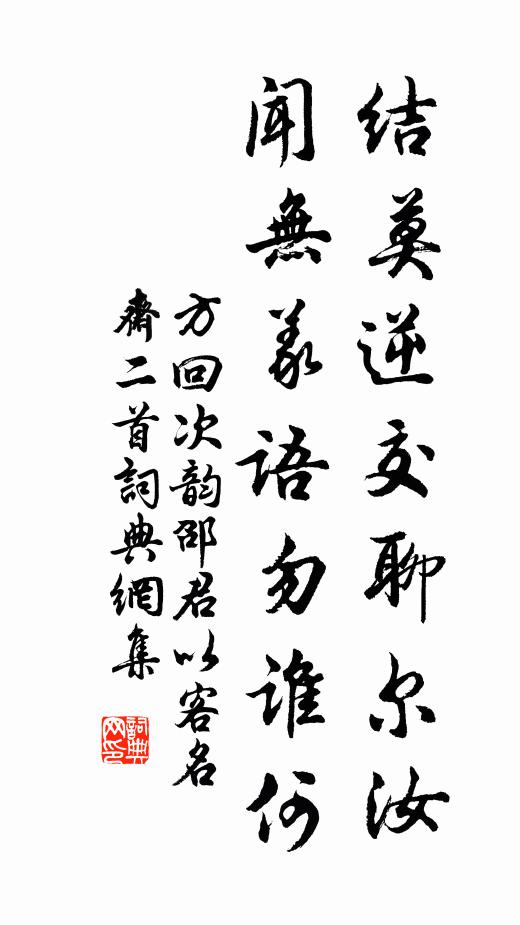 结莫逆交聊尔汝
闻無義語勿谁何
方回次韵邵君以客名
齋二首詞典網集
詞典
网印